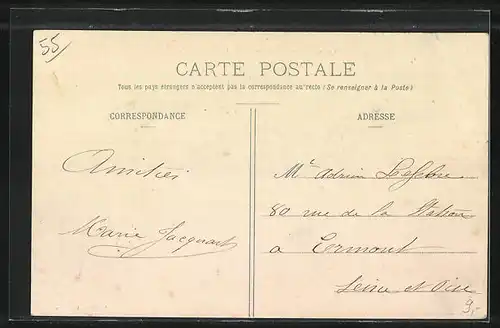 55
CARTE POSTALE
Tous les pays étrangers n'acceptent pas la correspondance au recto (Se renseigner à la Poste)
CORRESPONDANCE
ADRESSE
Amitiés
Marie Jacquart
Mr Adrien Lefebvre
80 rue de la Station
a Ermont
Seine et Oise
9,-